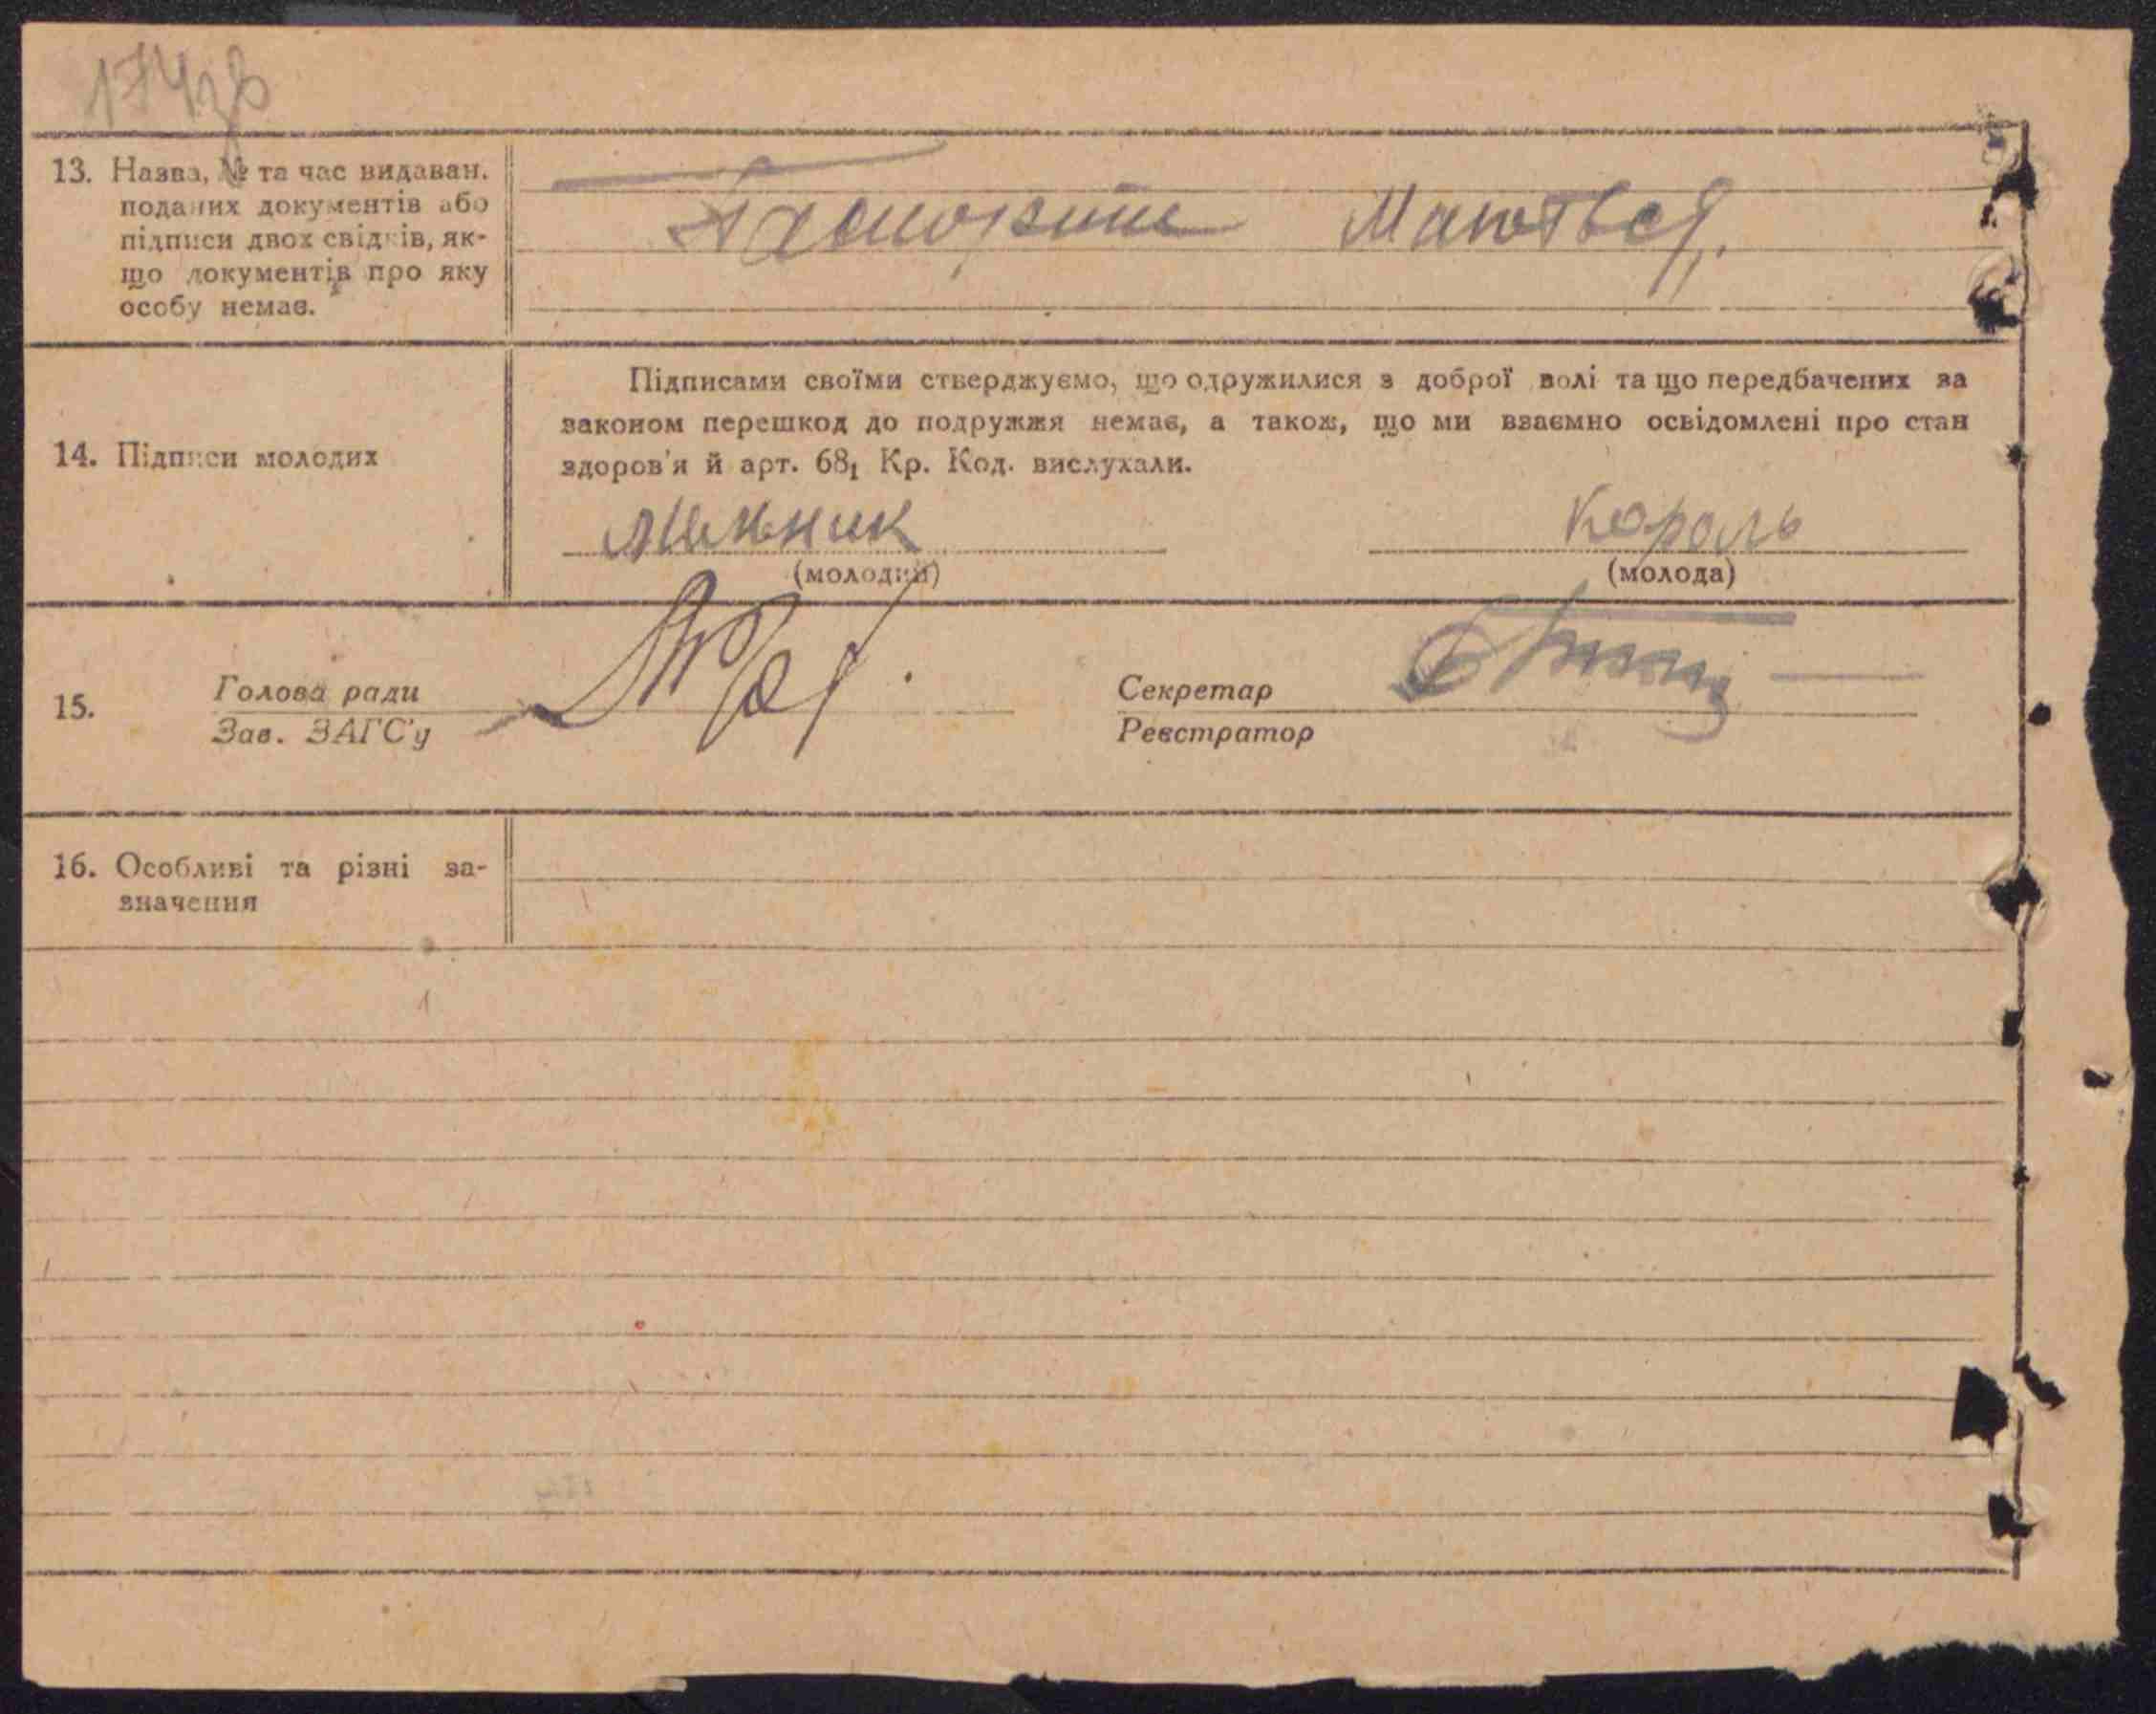 174зв
13. Назва, № та час видаван.
поданих документів або
підписи двох свідків, як-
що документів про яку
особу немає.
Маються
14. Підписи молодих
Підписами своїми стверджуємо, що одружилися з доброї волі та що передбачених за
законом перешкод до подружжя немає, а також, що ми взаємно освідомлені про стан
здоров'я й арт. 68₁ Кр. Код. вислухали.
Мельник
Король
(молодий)
(молода)
15.
Голова ради
Зав. ЗАГС'у
Секретар
Реєстратор
16. Особливі та різні за-
значення